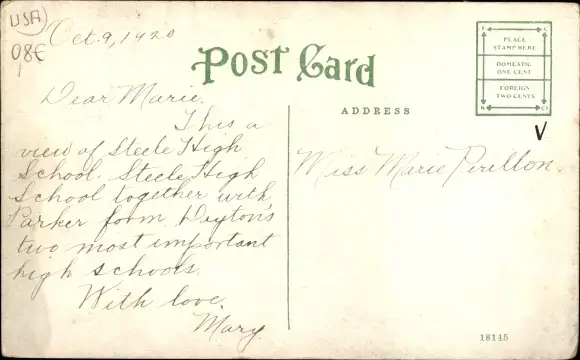 USA
08€
Oct. 9, 1920
POST CARD
PLACE
STAMP HERE
DOMESTIC
ONE CENT
FOREIGN
TWO CENTS
ADDRESS
Dear Marie.
This a
view of Steele High
School. Steele High
School together with
Parker form Dayton's
two most important
high schools.
With love,
Mary
Miss Marie
18145